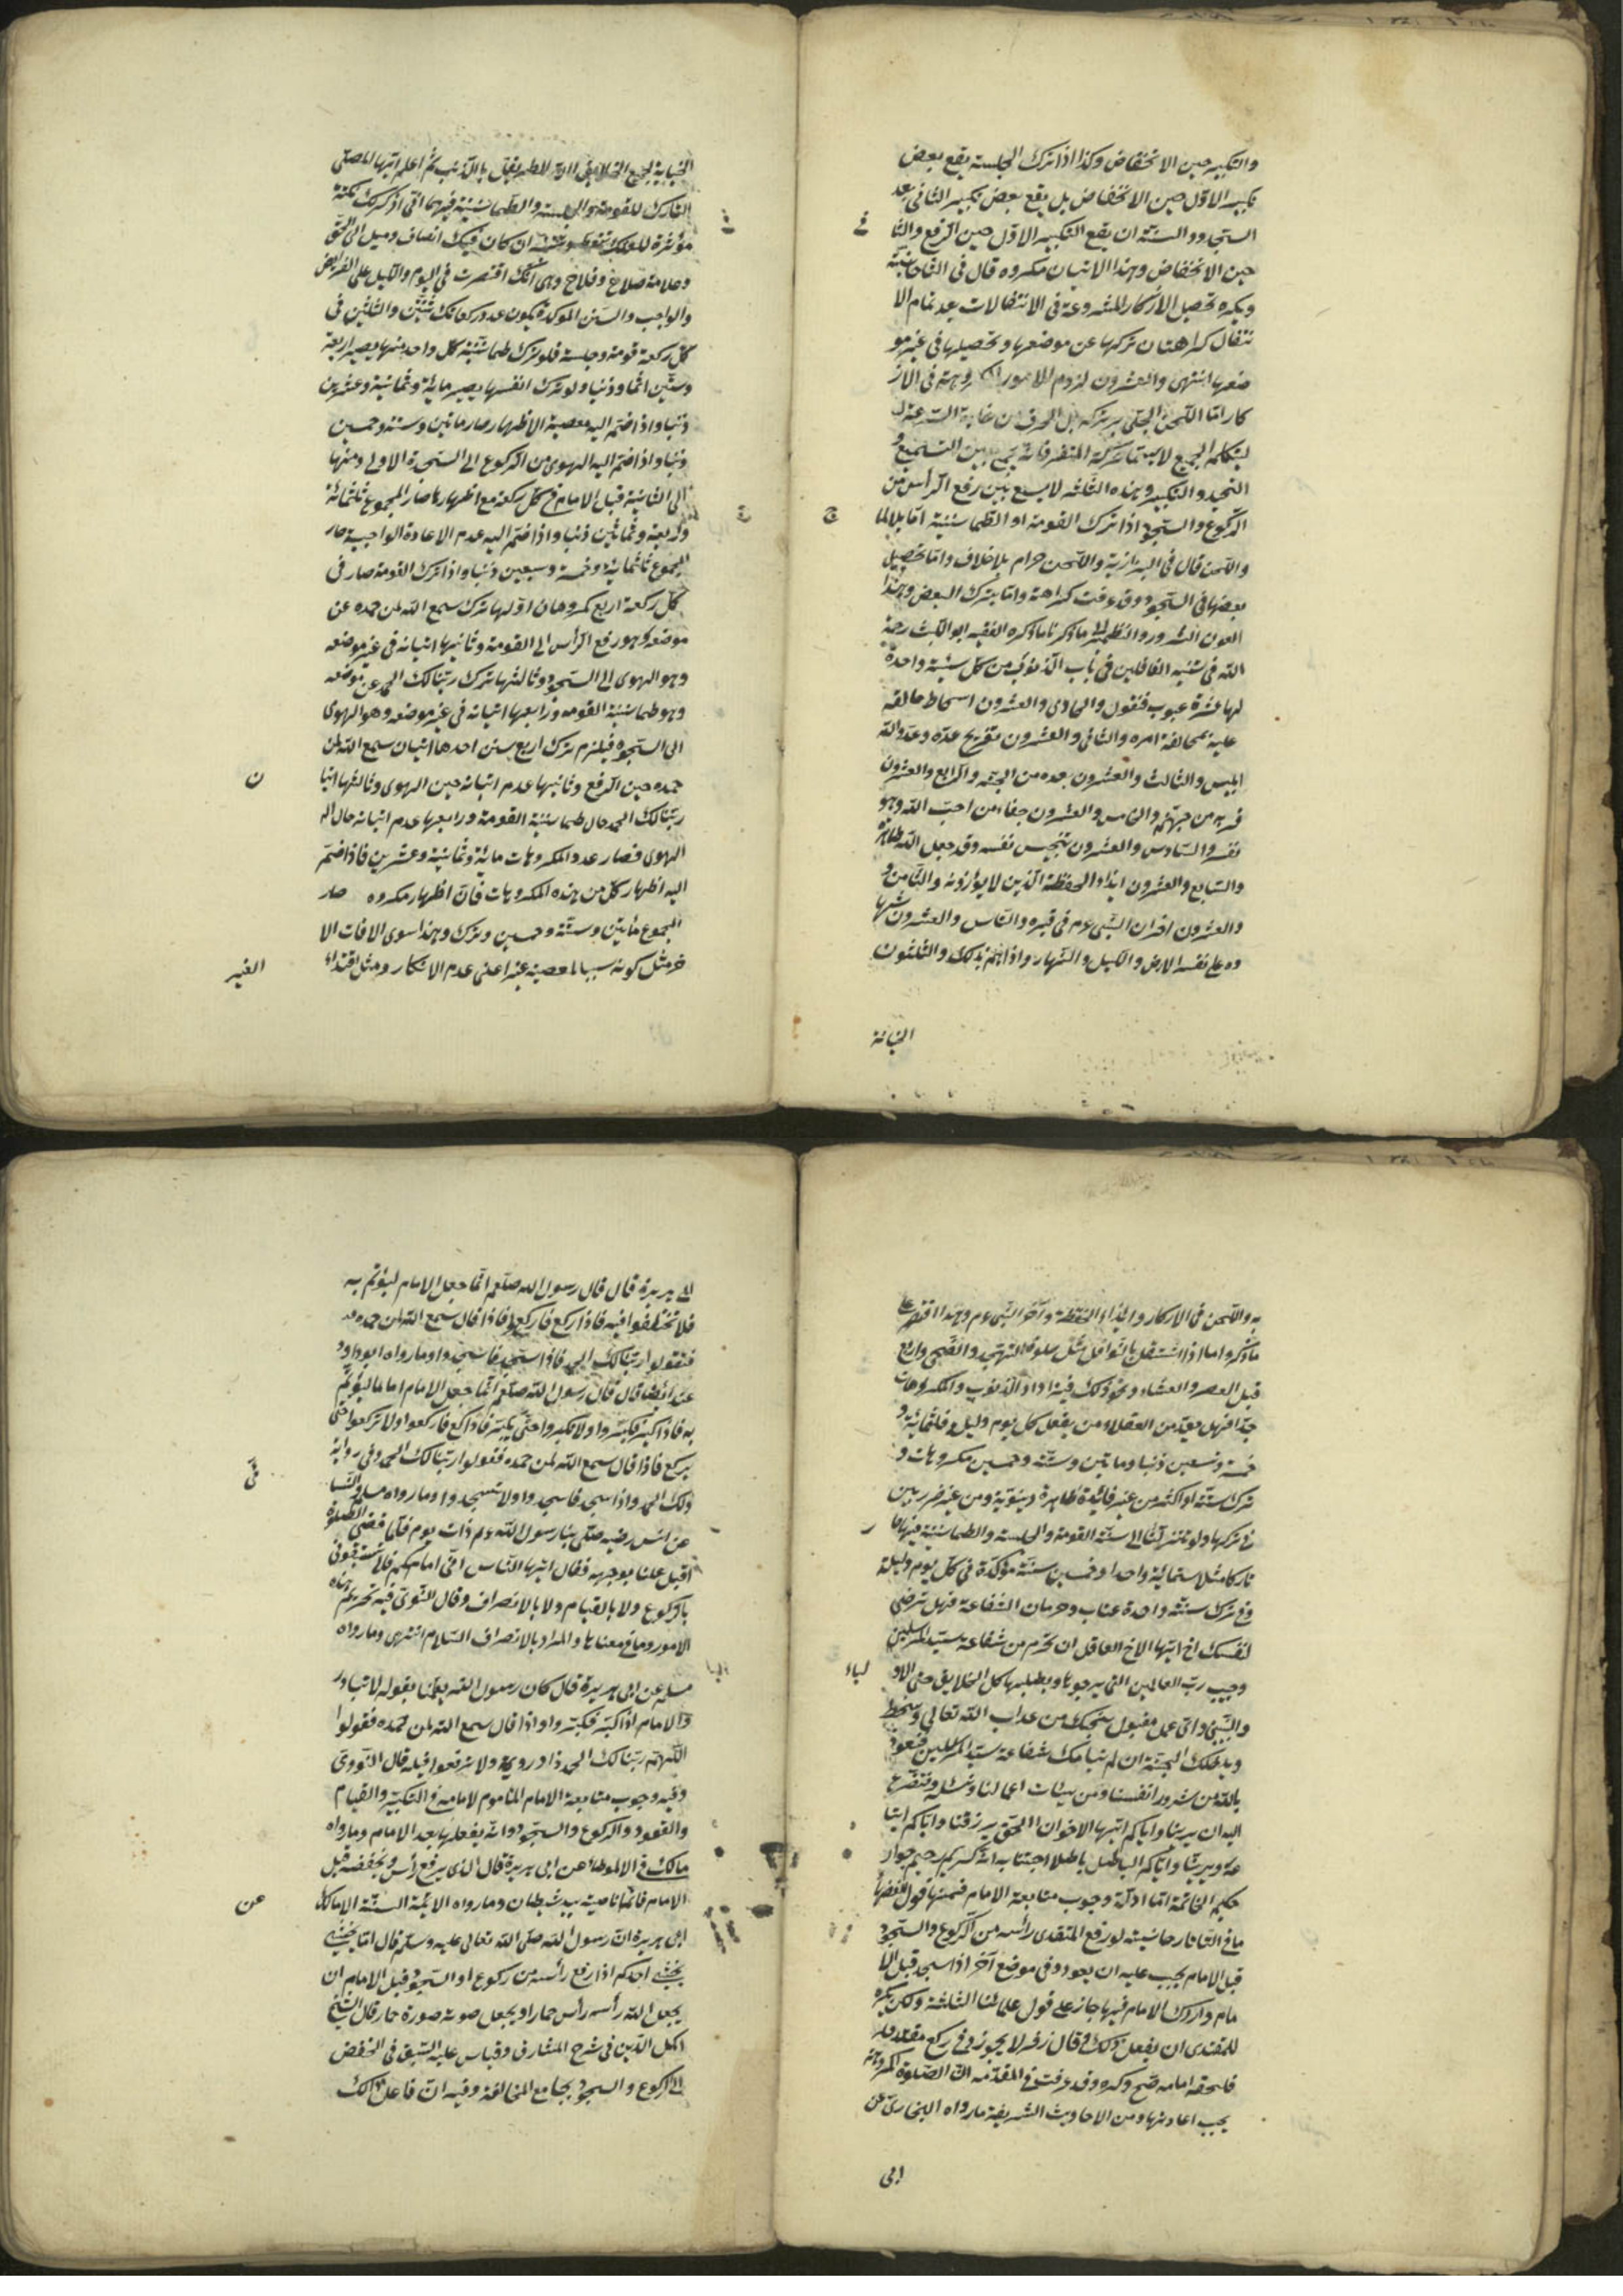 والتكبير حين الانخفاض وكذا اذا ترك الجلسة يقع بعض
تكبير الاول حين الانخفاض بل يقع بعض تكبير الثاني بعد
السجود والسنة ان يقع التكبير الاول حين الرفع والثا
ني
حين الانخفاض وهذا الاتيان مكروه قال في التاتارخانية
ويكره تحصيل الاذكار المشروعة في الانتقالات بعد تمام الا
نتقال كراهتان تركها عن موضعها وتحصيلها في غير مو
ضعها انتهى والعشرون لزوم الامور المكروهة في الاذ
كار اما اللحن الجلي بتركه بل الحرف من غاية السرعة
لتكلم الجميع لا سيما المنفرد فانه يجمع بين التسميع و
التحميد والتكبير وهذه الثلاثة لا يسع بين رفع الرأس من
الركوع والسجود اذا ترك القومة او الطمانينة
واللحن قال في البزازية واللحن حرام بلا خلاف واما تحصيل
بعضها في السجود وقد عرفت كراهته واما بترك البعض وهذا
ما ذكرنا ما ذكره الفقيه ابو الليث رحمة
الله في تنبيه الغافلين في باب الذنوب من كل سيئة واحدة
لها عشرة عيوب فنقول والحادي والعشرون اسخاط خالقه
عليه بمخالفة امره والثاني والعشرون تفريح عدوه وعدو الله
ابليس والثالث والعشرون بعده من الجنة والرابع والعشرون
قربه من جهنم والخامس والعشرون جفاء من احب الله وهو
نفسه والسادس والعشرون تنجيس نفسه وقد جعل الله طاهرة
والسابع والعشرون ايذاء الحفظة الذين لا يؤذونه والثامن و
والعشرون احزان النبي عم في قبره والتاسع والعشرون اشها
ده على نفسه الارض والليل والنهار واذاهم بذلك والثلثون
الخيانة
الخيانة لجميع الخلايق
التارك للقومة والجلسة والطمانينة فيهما اني اذكر لك نكتة
مؤثرة ان كان فيك انصاف وميل الى الحق
وعلامة صلاح وفلاح وهي انك اقتصرت في اليوم والليل على الفرايض
والواجب والسنن المؤكدة يكون عدد ركعاتك ثنتين والثلثين في
كل ركعة قومة وجلسة فلو ترك طمانينة كل واحد منها يصير اربعة
وستين اثما وذنبا ولو ترك انفسها يصير ماية وثمانية وعشرين
ذنبا واذا ضم اليه معصية الاظهار صار ماتين وستة وخمسين
ذنبا واذا ضم اليه الهوى من الركوع الى السجدة الاولى ومنها
الى الثانية قبل الامام في كل ركعة مع اظهارها صار المجموع ثلثماية
واربعة وثمانين ذنبا واذا ضم اليه عدم الاعادة الواجبة صار
المجموع ثلثماية وخمسة وسبعين ذنبا واذا ترك القومة صار في
كل ركعة اربع مكروهات اولها ترك سمع الله لمن حمده عن
موضعه وهو رفع الرأس الى القومة وثانيها اتيانه في غير موضعه
وهو الهوى الى السجود وثالثها ترك ربنا لك الحمد عن موضعه
وهو طمانينة القومة ورابعها اتيانه في غير موضعه وهو الهوى
الى السجود فيلزم ترك اربع سنن احدها اتيان سمع الله لمن
حمده حين الرفع وثانيها عدم اتيانه حين الهوى وثالثها اتيا
ن
ربنا لك الحمد حال طمانينة القومة ورابعها عدم اتيانه حال الـ
الهوى فصار عدد المكروهات ماية وثمانية وعشرين فاذا ضم
اليه اظهار كل من هذه المكروهات فان اظهار مكروه صار
المجموع ماتين وستة وخمسين وترك وهذا سوى الافات الا
خر مثل كونه سببا لمعصية غيره اعني عدم الانكار ومثل اقتداء
الغير
به واللحن في الاذكار وايذاء الحفظة والنبي عم وهذا اقتصر على
ما ذكروا اما اذا اشتغل بالنوافل مثل صلوة التهجد والضحى واربع
قبل العصر والعشاء ونحو ذلك فيزداد الذنوب والمكروهات
جدا فهل يعد من العقلاء ومن يفعل كل يوم وليلة ثلثماية و
خمسة وتسعين ذنبا وماتين وستة وخمسين مكروهات و
ترك سنة او اكثر من غير فائدة ظاهرة دنيوية ومن غير ضرر بين
في تركها ولو تنزلنا الى سنة القومة والجلسة والطمانينة فيهما
تاركا مثلا ستماية واحدا وخمسين سنة مؤكدة في كل يوم وليلة
وفي ترك سنة واحدة عتاب وحرمان الشفاعة فهل ترضى
لنفسك ايها الاخ العاقل ان تحرم من شفاعة سيد المرسلين
وحبيب رب العالمين التي يرجوها ويطلبها كل الخلايق حتى الاو
لياء
والنبين واي عمل مقبول ينجيك من عذاب الله تعالى وسخطه
ويدخلك الجنة ان لم تنلك شفاعة سيد المرسلين فنعوذ
بالله من شرور انفسنا ومن سيئات اعمالنا ونتضرع
اليه ان يرينا واياكم ايها الاخوان الحق ويرزقنا واياكم اتبا
عه ويرينا واياكم الباطل باطلا اجتنابه انه كريم رحيم جواد
حكيم الخاتمة اما ادلة وجوب متابعة الامام فمنها قول
ما في التاتارخانية لو رفع المقتدي رأسه من الركوع والسجود
قبل الامام يجب عليه ان يعود وفي موضع آخر اذا سجد قبل الا
مام وادرك الامام فيها جاز على قول علمائنا الثلثة ولكن يكره
للمقتدي ان يفعل ذلك وقال زفر لا يجوز
فلحقه امامه صح وكره وقد عرفت في المقدمة ان الصلوة المكروهة
يجب اعادتها ومن الاحاديث الشريفة ما رواه البخاري عن
ابى
ابى هريرة قال قال رسول الله صلعم انما جعل الامام ليؤتم به
فلا تختلفوا فيه فاذا ركع فاركعوا فاذا قال سمع الله لمن حمده
فقولوا ربنا لك الحمد فاذا سجد فاسجدوا وما رواه ابو داود
عنه ايضا قال قال رسول الله صلعم انما جعل الامام اماما ليؤتم
به فاذا كبر فكبروا ولا تكبروا حتى يكبر فاذا ركع فاركعوا ولا تركعوا حتى
يركع فاذا قال سمع الله لمن حمده فقولوا ربنا لك الحمد وفي رواية
ولك الحمد واذا سجد فاسجدوا ولا تسجدوا وما رواه مسلم والنسا
ئى
عن انس رضيه صلى بنا رسول الله عم ذات يوم فلما قضى الصلوة
اقبل علينا بوجهه فقال ايها الناس اني امامكم فلا تسبقوني
بالركوع ولا بالقيام ولا بالانصراف وقال النووي فيه تحريم هذه
الامور وما في معناها والمراد بالانصراف السلام انتهى وما رواه
مسلم عن ابى هريرة قال كان رسول الله يعلمنا بقوله لا تبادر
وا الامام اذا كبر فكبروا واذا قال سمع الله لمن حمده فقولوا
اللهم ربنا لك الحمد ولا ترفعوا قبله قال النووي
وفيه وجوب متابعة الامام الماموم لامامه في التكبير والقيام
والقعود والركوع والسجود وانه يفعلها بعد الامام وما رواه
مالك في الموطا عن ابى هريرة قال الذى يرفع رأسه ويخفضه قبل
الامام فانما ناصيته بيد شيطان وما رواه الائمة الستة الا مالك
عن
ابى هريرة ان رسول الله صلى الله تعالى عليه وسلم قال اما يخشى
يخشى احدكم اذا رفع رأسه من ركوع او السجود قبل الامام ان
يجعل الله رأسه رأس حمار او يجعل صورته صورة حمار قال الشيخ
اكمل الدين في شرح المشارق وقياس عليه السبق في الخفض
الى الركوع والسجود بجامع المخالفة وفيه ان فاعل ذلك